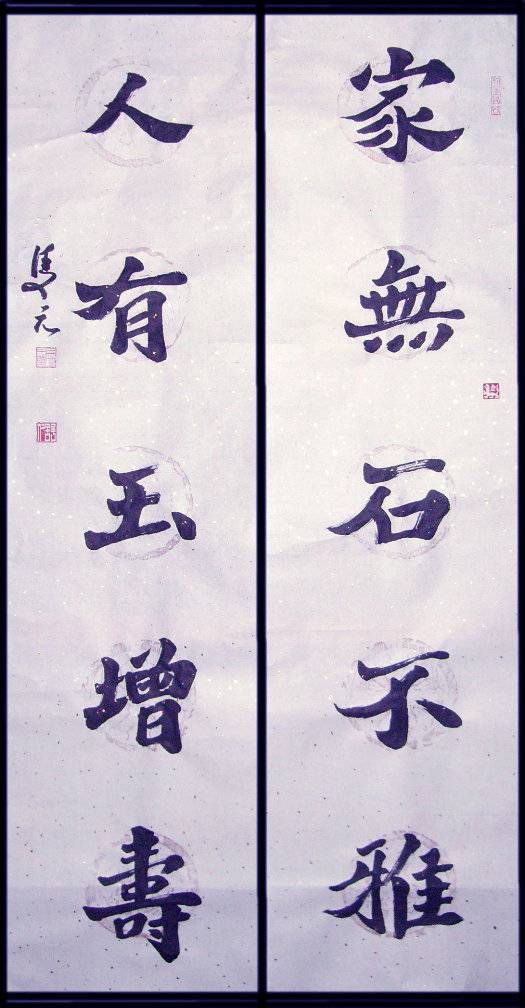 家無石不雅
人有玉增壽